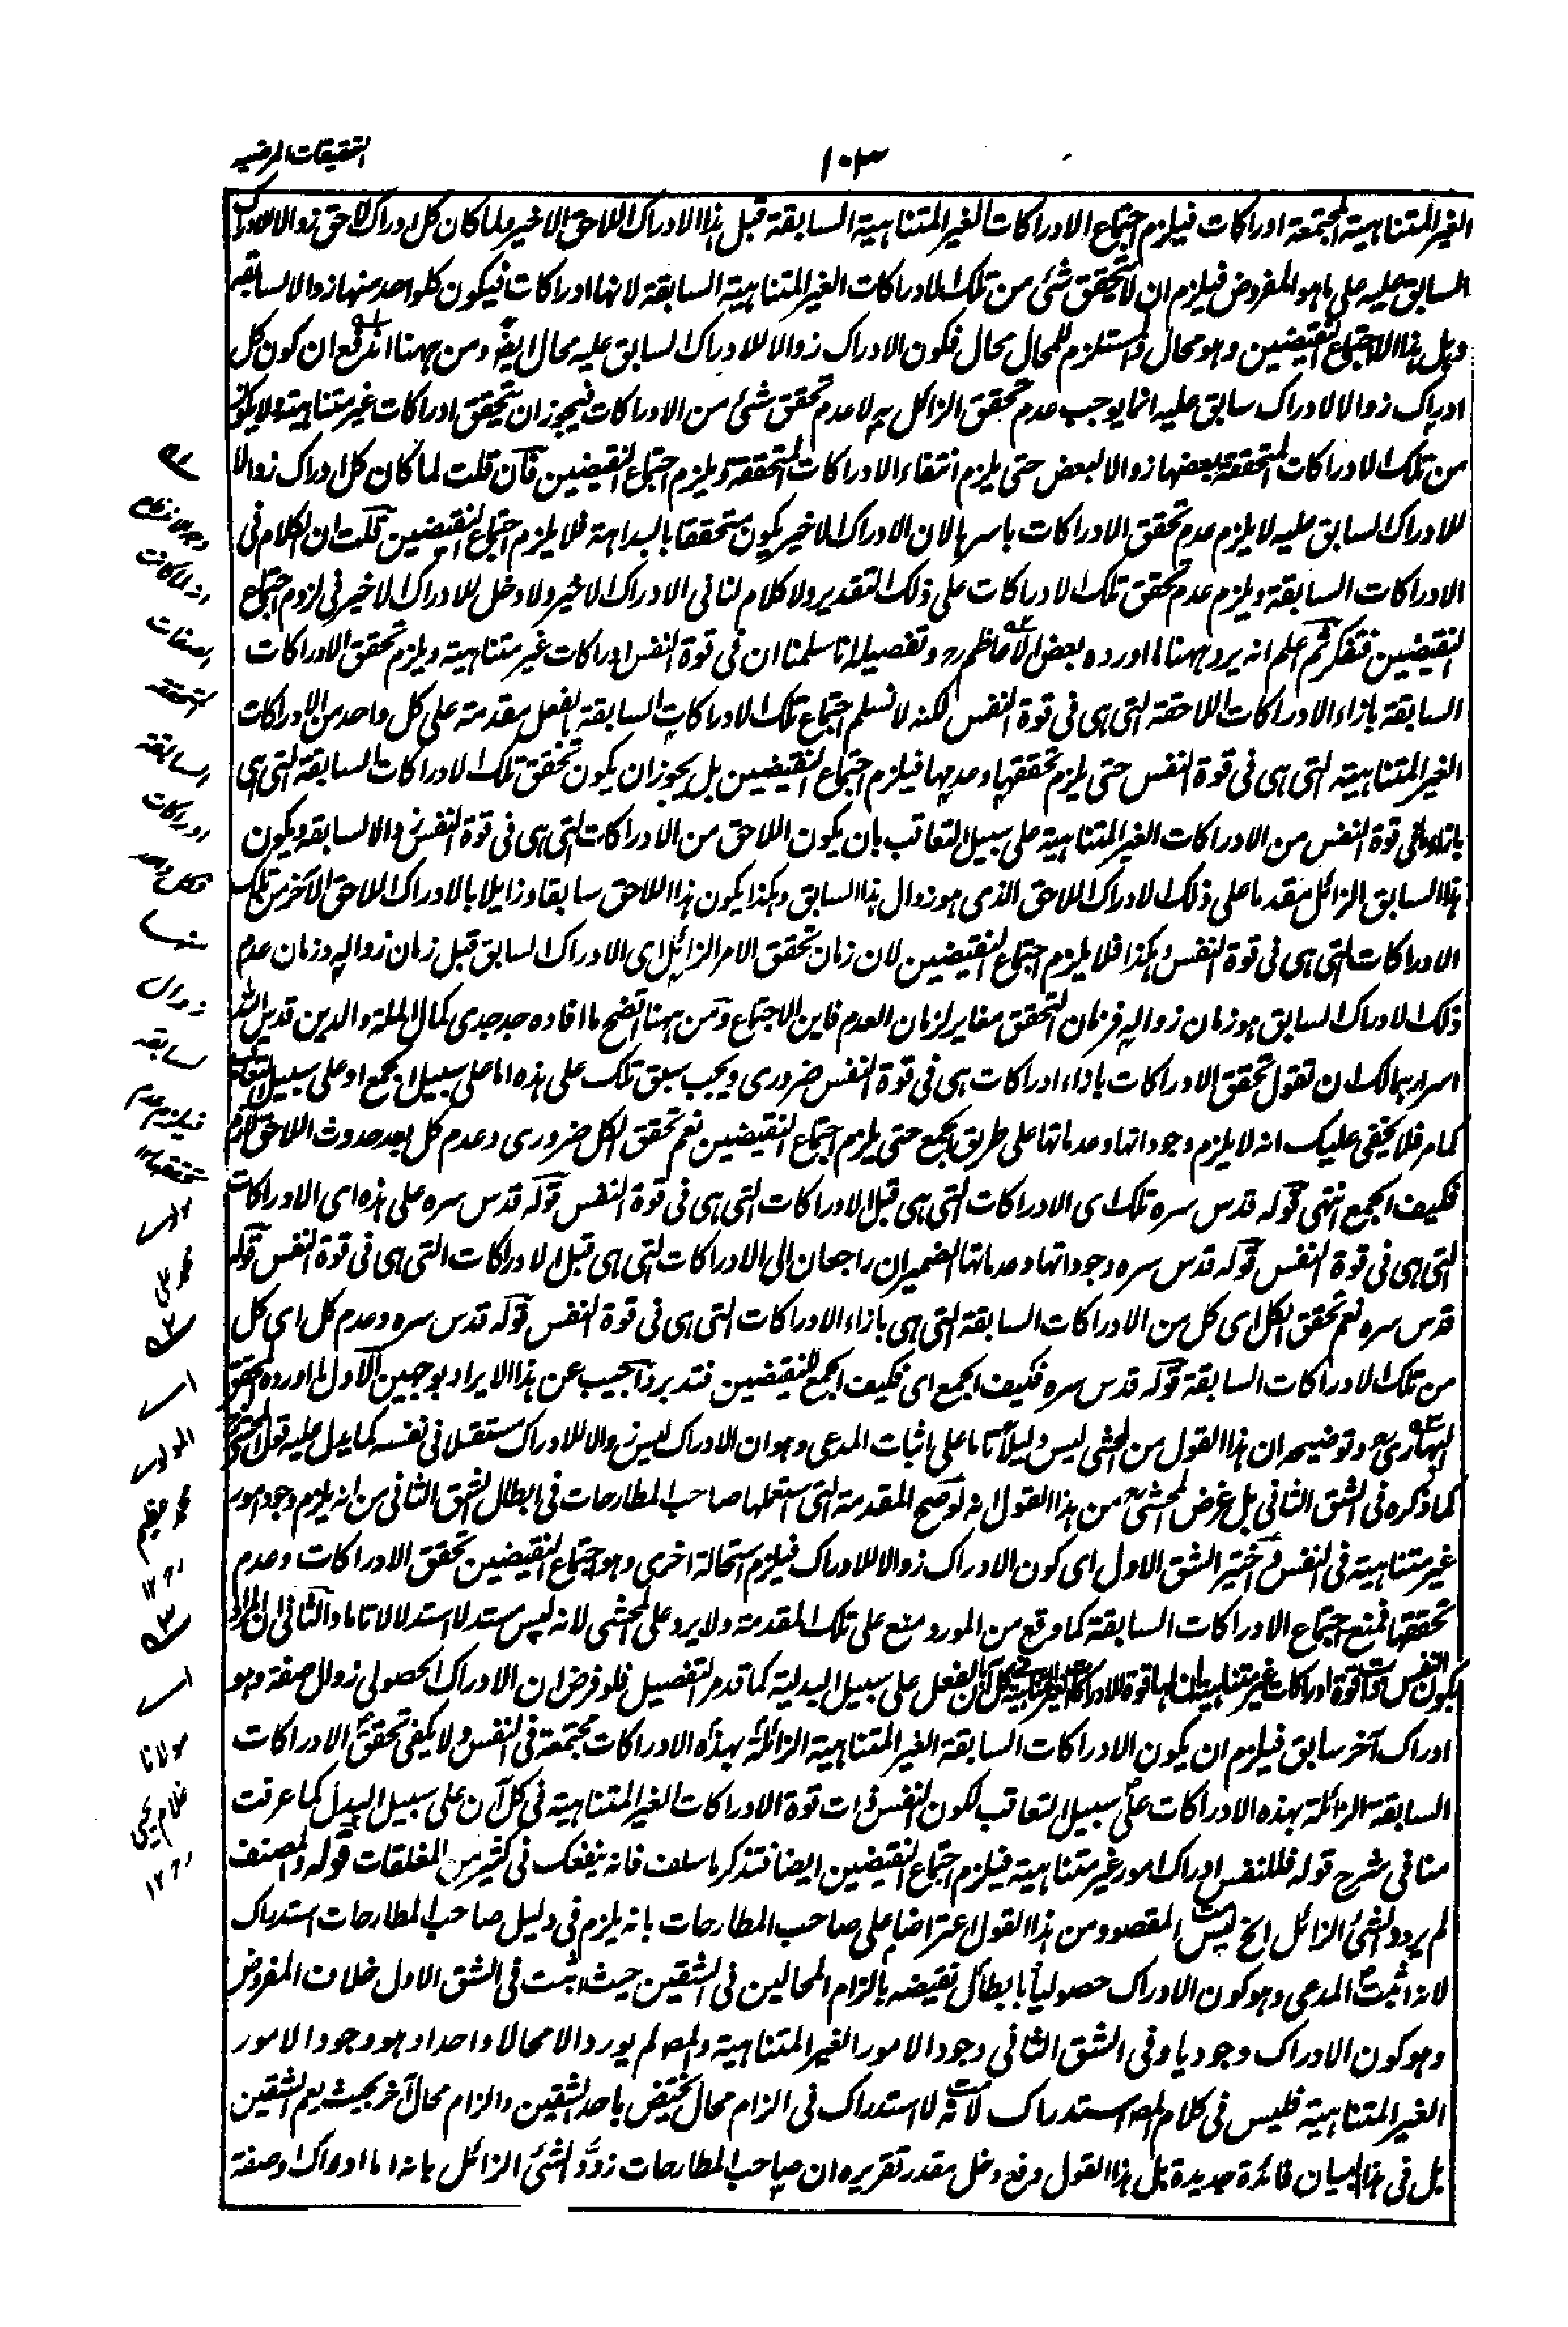 التحقيقات المرضيه
١٠٣
الغير المتناهية المجتمعة ادراكات فيلزم اجتماع الادراكات الغير المتناهية السابقة قبل هذا الادراك اللاحق الاخير ولما كان كل ادراك لاحق زوالا للادراك
السابق عليه على ما هو المفروض فيلزم ان لا يتحقق شئ من تلك الادراكات الغير المتناهية السابقة لانها ادراكات فيكون كلواحد منها زوالا لسابقه
وهل هذا الا اجتماع النقيضين وهو محال والمستلزم للمحال محال فكون الادراك زوالا للادراك السابق عليه محال ايضا ومن ههنا اندفع ان كون كل
ادراك زوالا لادراك سابق عليه انما يوجب عدم تحقق الزائل به لا عدم تحقق شئ من الادراكات فيجوز ان يتحقق ادراكات غير متناهية ولا يكون
من تلك الادراكات المتحققة بعضها زوالا لبعض حتى يلزم انتفاء الادراكات المتحققة ويلزم اجتماع النقيضين فان قلت لما كان كل ادراك زوالا
للادراك السابق عليه لا يلزم عدم تحقق الادراكات باسرها لان الادراك الاخير يكون متحققا بالبداهة فلا يلزم اجتماع النقيضين قلت ان الكلام فى
الادراكات السابقة ويلزم عدم تحقق تلك الادراكات على ذلك التقدير ولا كلام لنا فى الادراك الاخير ولا دخل للادراك الاخير فى لزوم اجتماع
النقيضين فتفكر ثم اعلم انه يرد ههنا ما اورده بعض الاعاظم رح وتفصيله انا سلمنا ان فى قوة النفس ادراكات غير متناهية ويلزم تحقق الادراكات
السابقة بازاء الادراكات اللاحقة التى هى فى قوة النفس لكنه لا نسلم اجتماع تلك الادراكات السابقة بالفعل مقدمة على كل واحد من الادراكات
الغير المتناهية التى هى فى قوة النفس حتى يلزم تحققها وعدمها فيلزم اجتماع النقيضين بل يجوز ان يكون تحقق تلك الادراكات السابقة التى هى
بازاء ما فى قوة النفس من الادراكات الغير المتناهية على سبيل التعاقب بان يكون اللاحق من الادراكات التى هى فى قوة النفس زوالا لسابقه ويكون
هذا السابق الزائل مقدما على ذلك الادراك اللاحق الذى هو زوال هذا السابق وهكذا يكون هذا اللاحق سابقا وزايلا بالادراك اللاحق الآخر من تلك
الادراكات التى هى فى قوة النفس وهكذا فلا يلزم اجتماع النقيضين لان زمان تحقق الامر الزائل اى الادراك السابق قبل زمان زواله وزمان عدم
ذلك الادراك السابق هو زمان زواله فزمان التحقق مغاير لزمان العدم فاين الاجتماع ومن ههنا اتضح ما افاده جد جدى كمال الملة والدين قدس الله
اسرارهما لك ان تقول تحقق الادراكات بازاء ادراكات هى فى قوة النفس ضرورى ويجب سبق تلك على هذه اما على سبيل الجمع او على سبيل التعاقب
كما مر فلا يخفى عليك انه لا يلزم وجوداتها وعدماتها على طريق الجمع حتى يلزم اجتماع النقيضين نعم تحقق الكل ضرورى وعدم كل بعد حدوث اللاحق لازم
فكيف الجمع انتهى قوله قدس سره تلك اى الادراكات التى هى قبل الادراكات التى هى فى قوة النفس قوله قدس سره على هذه اى الادراكات
التى هى فى قوة النفس قوله قدس سره وجوداتها وعدماتها الضميران راجعان الى الادراكات التى هى قبل الادراكات التى هى فى قوة النفس قوله
قدس سره نعم تحقق الكل اى كل من الادراكات السابقة التى هى بازاء الادراكات التى هى فى قوة النفس قوله قدس سره وعدم كل اى كل
من تلك الادراكات السابقة قوله قدس سره فكيف الجمع اى فكيف الجمع للنقيضين فتدبر واجيب عن هذا الايراد بوجهين الاول ما اورده المحقق
البهارى رح وتوضيحه ان هذا القول من المحشى ليس دليلا تاما على اثبات المدعى وهو ان الادراك ليس زوالا للادراك مستقلا فى نفسه كما يدل عليه قول المحشى
كما ذكره فى الشق الثانى بل غرض المحشى رح من هذا القول انه لو صح المقدمة التى استعملها صاحب المطارحات فى ابطال الشق الثانى من انه يلزم وجود امور
غير متناهية فى النفس فى اختير الشق الاول اى كون الادراك زوالا للادراك فيلزم استحالة اخرى وهو اجتماع النقيضين تحقق الادراكات وعدم
تحققها فمنع اجتماع الادراكات السابقة كما وقع من المورد منع على تلك المقدمة ولا يرد على المحشى لانه ليس مستدلا استدلالا تاما والثانى ان المراد
بكون النفس قوة ادراكات غير متناهية ان لها قوة الادراكات بالفعل على سبيل البدلية كما قدم التفصيل فلو فرض ان الادراك الحصولى زوال صفة وهو
ادراك آخر سابق فيلزم ان يكون الادراكات السابقة الغير المتناهية الزائلة بهذه الادراكات مجتمعة فى النفس ولا يكفى تحقق الادراكات
السابقة الزائلة بهذه الادراكات على سبيل التعاقب لكون النفس ذات قوة الادراكات الغير المتناهية فى كل آن على سبيل البدل كما عرفت
منا فى شرح قوله فللنفس ادراك امور غير متناهية فيلزم اجتماع النقيضين ايضا فتذكر ما سلف فانه ينفعك فى كثير من المغلقات قوله والمصنف
لم يردد الشئ الزائل الخ ليس المقصود من هذا القول اعتراضا على صاحب المطارحات بانه يلزم فى دليل صاحب المطارحات استدراك
لانه اثبت المدعى وهو كون الادراك حصوليا بابطال نقيضه بالزام المحالين فى الشقين حيث اثبت فى الشق الاول خلاف المفروض
وهو كون الادراك وجوديا وفى الشق الثانى وجود الامور الغير المتناهية والمصـ لم يورد الا محالا واحدا وهو وجود الامور
الغير المتناهية فليس فى كلام المصـ استدراك لانه لا استدراك فى الزام محال يختص باحد الشقين والزام محال آخر بحيث يعم الشقين
بل فى هذا البيان فائدة جديدة بل هذا القول دفع دخل مقدر تقريره ان صاحب المطارحات ردد الشئ الزائل بانه اما ادراك او صفة
وجه الاندفاع
ان الادراكات
بصفات
المتحققة
السابقة
ادراكات
فكل واحد
منها
زوال
لسابقه
فيلزم عدم
تحققها ١٢
اى
المولوى
محمد عظيم
١٢
اى
مولانا
غلام يحيى
١٢